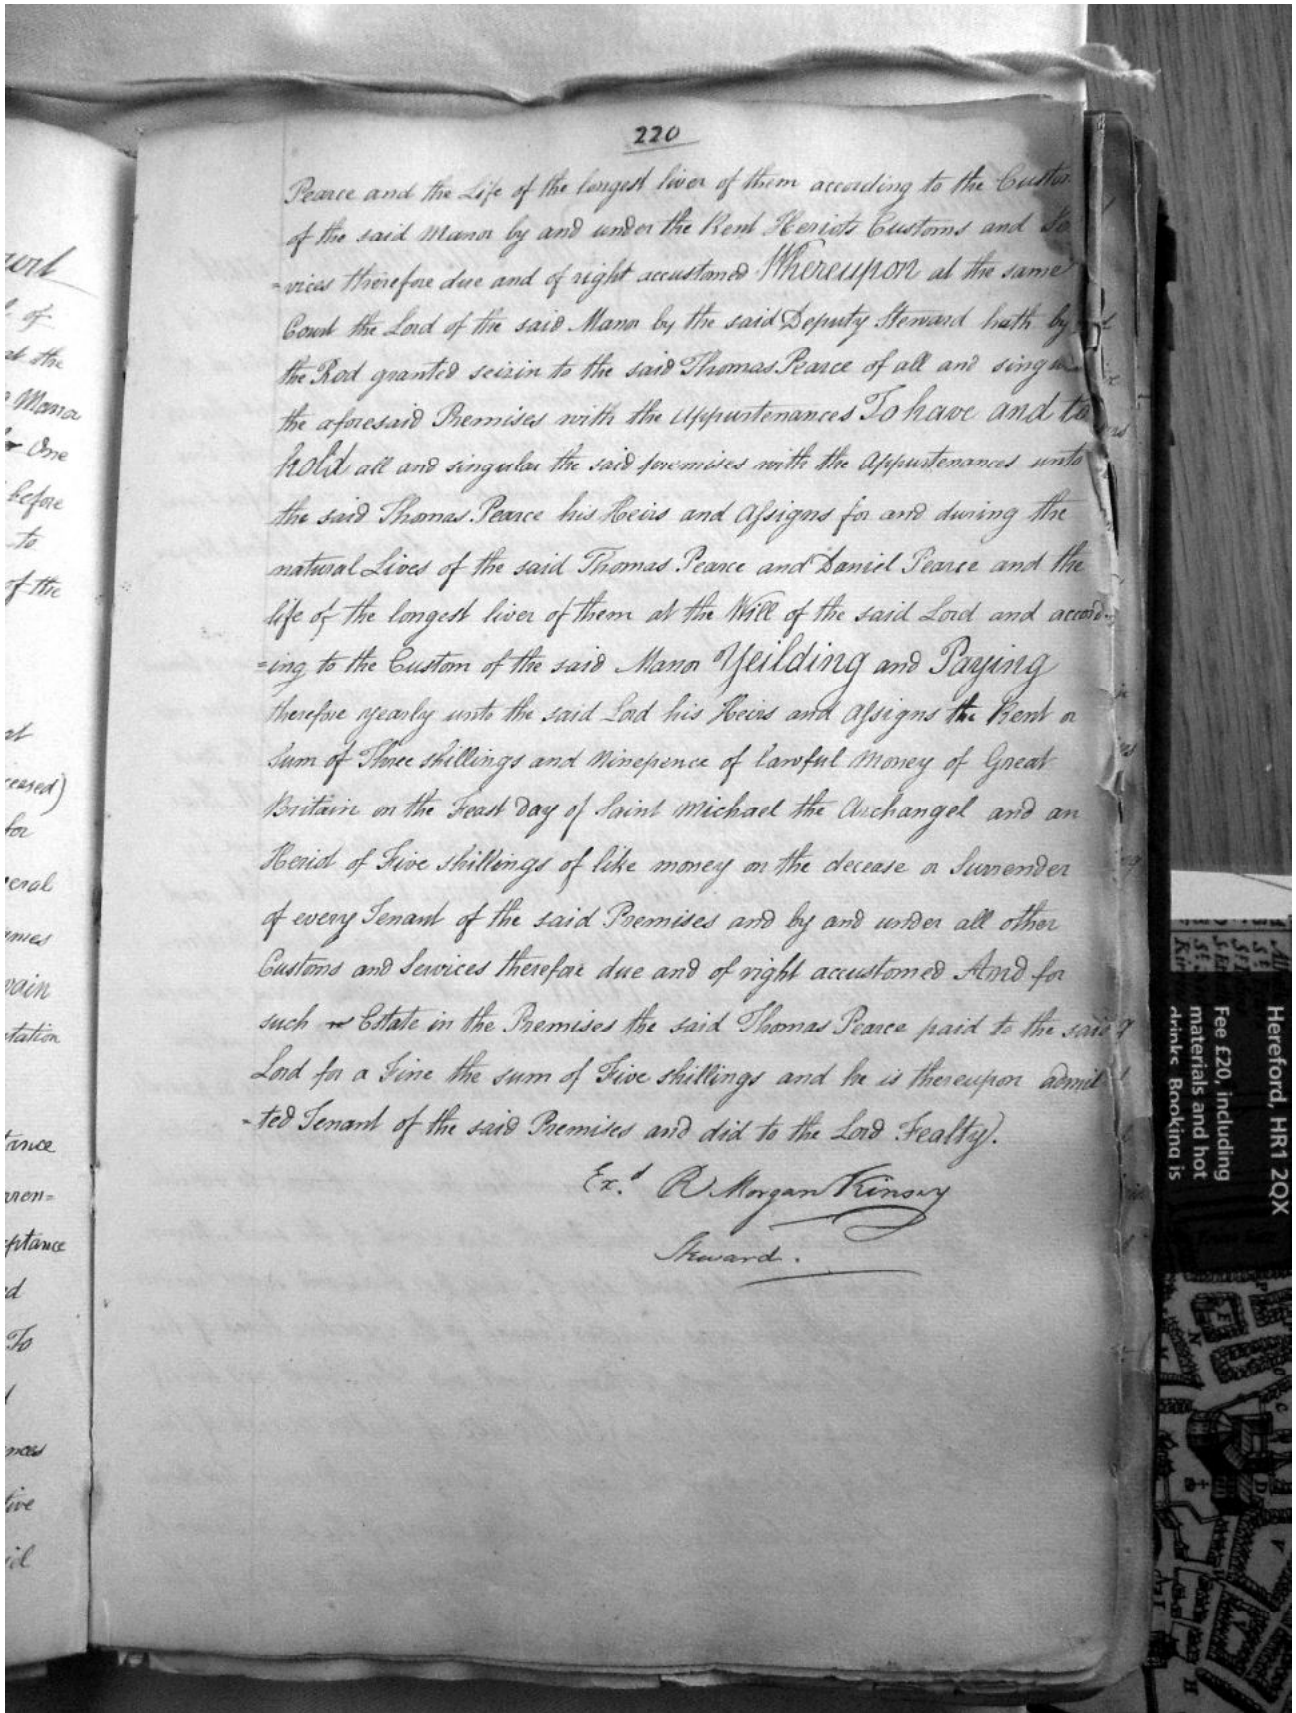 220
Pearce and the Life of the longest liver of them according to the Custo
of the said Manor by and under the Rent Heriots Customs and Se
=vices therefore due and of right accustomed Whereupon at the same
Court the Lord of the said Manor by the said Deputy Steward hath by
the Rod granted seizin to the said Thomas Pearce of all and singu
the aforesaid Premises with the Appurtenances To have and to
hold all and singular the said premises with the Appurtenances unto
the said Thomas Pearce his Heirs and Assigns for and during the
natural Lives of the said Thomas Pearce and Daniel Pearce and the
life of the longest liver of them at the Will of the said Lord and accord-
=ing to the Custom of the said Manor Yeilding and Paying
therefore yearly unto the said Lord his Heirs and Assigns the Rent or
Sum of Three shillings and Ninepence of lawful Money of Great
Britain on the Feast Day of Saint Michael the Archangel and an
Heriot of Five shillings of like money on the decease or Surrender
of every Tenant of the said Premises and by and under all other
Customs and Services therefore due and of right accustomed And for
such Estate in the Premises the said Thomas Pearce paid to the said
Lord for a Fine the sum of Five shillings and he is thereupon admit
=ted Tenant of the said Premises and did to the Lord Fealty.
Ex.d R Morgan Kinsey
Steward.
of
at the
Manor
One
before
to
of the
for
To
Hereford, HR1 2QX
Fee £20, including
materials and hot
drinks. Booking is